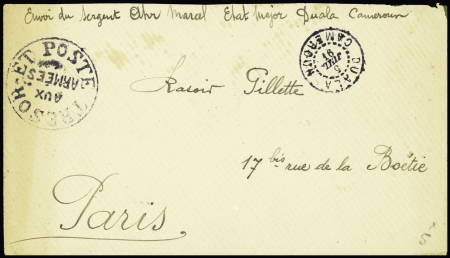 Envoi du Sergent Ohr Marcel Etat Major Duala Cameroun
TRESOR ET POSTE
AUX
ARMÉES
DUALA
CAMEROUN
Rasoir Gillette
17 bis rue de la Boëtie
Paris